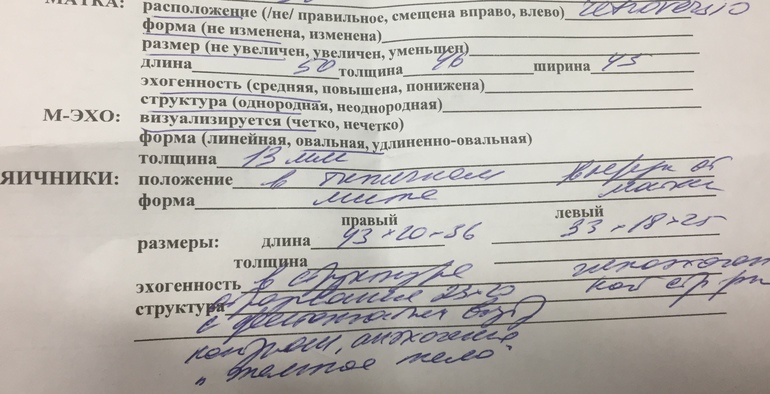 МАТКА: расположение (/не/ правильное, смещена вправо, влево) retroversio
форма (не изменена, изменена)
размер (не увеличен, увеличен, уменьшен)
длина 50 толщина 46 ширина 45
эхогенность (средняя, повышена, понижена)
структура (однородная, неоднородная)
М-ЭХО: визуализируется (четко, нечетко)
форма (линейная, овальная, удлиненно-овальная)
толщина 13 мм
ЯИЧНИКИ: положение в типичном кверху от
форма месте матки
правый левый
размеры: длина 43×20×36 33×18×25
толщина
эхогенность в структуре
структура образование 23×20
с
контуром,
"желтое тело"